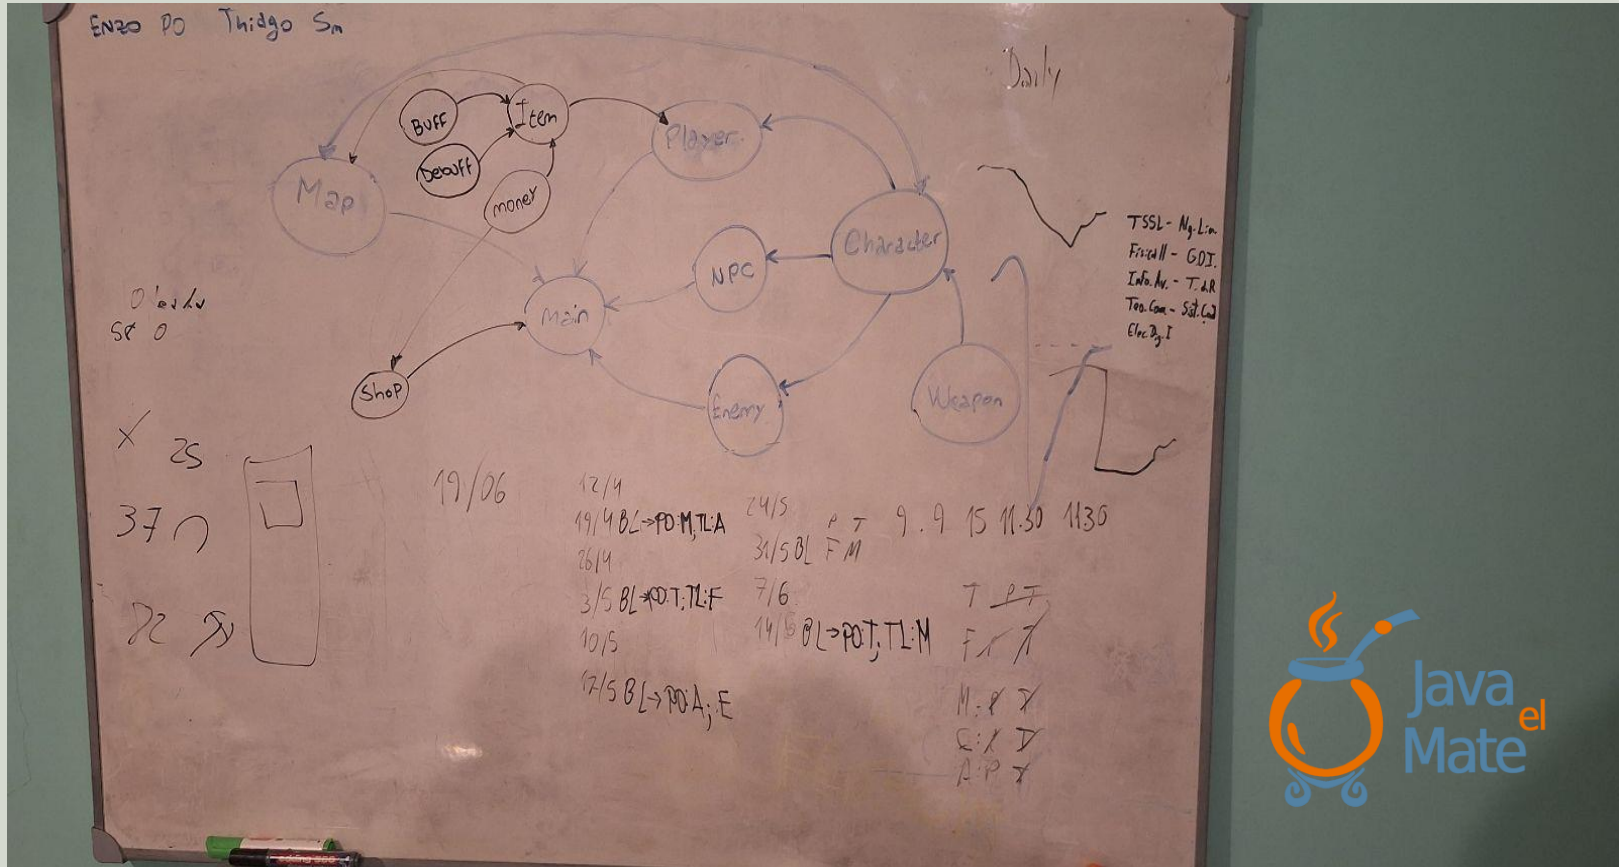 Enzo PO Thiago Sm
Daily
Buff
Item
Debuff
money
Player
Map
Character
NPC
Main
Shop
Enemy
Weapon
TSSL - Alg.Lin
Fisica II - GDI.
Info.Av. - T.d.R
Elec.Dig.I
X 25
37
19/06
12/4
19/4 BL→PO:M, TL:A
26/4
3/5 BL→PO:T; TL:F
10/5
17/5 BL→PO:A; :E
24/5
31/5 BL F M
7/6
14/6 BL→PO:T; TL:M
P T
9 . 9 15 11.30 1130
T P T
F
M:
A:P
Java
el
Mate